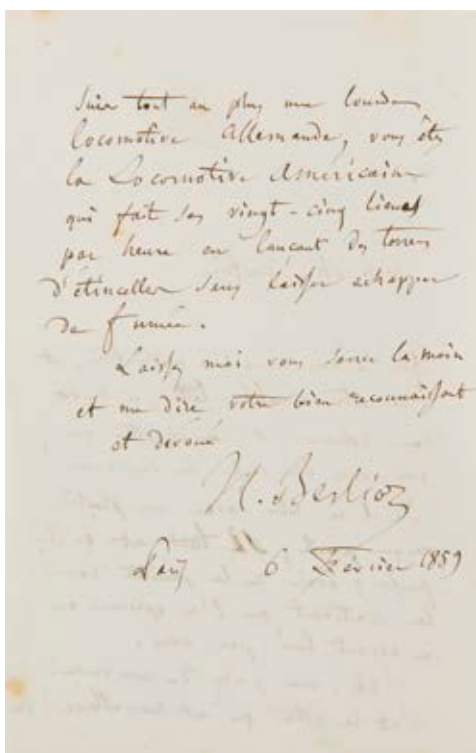 suis tout au plus une lourde
locomotive Allemande, vous êtes
la Locomotive Américaine
qui fait ses vingt-cinq lieues
par heure en lançant des torrens
d'étincelles sans laisser echapper
de fumée.
Laissez moi vous serrer la main
et me dire votre bien reconnaissant
et devoué
H. Berlioz
Paris 6 Février 1859